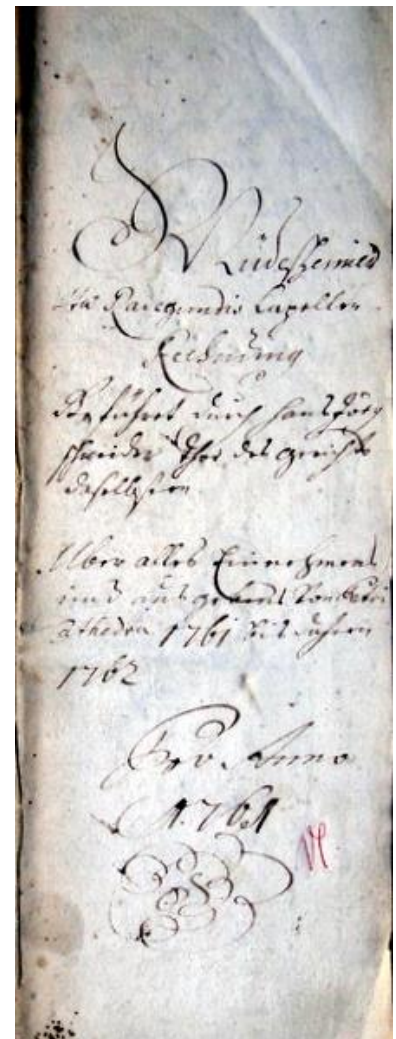 Rüdeßheimer
Radegundis Capellen
Rechnung
Geführet durch Hans Görg
Schneider des gerichts
daselbsten
Über alles Einnehmens
und aus gebens von Petri
Cathedra 1761 bis dahin
1762
Pro Anno
1761